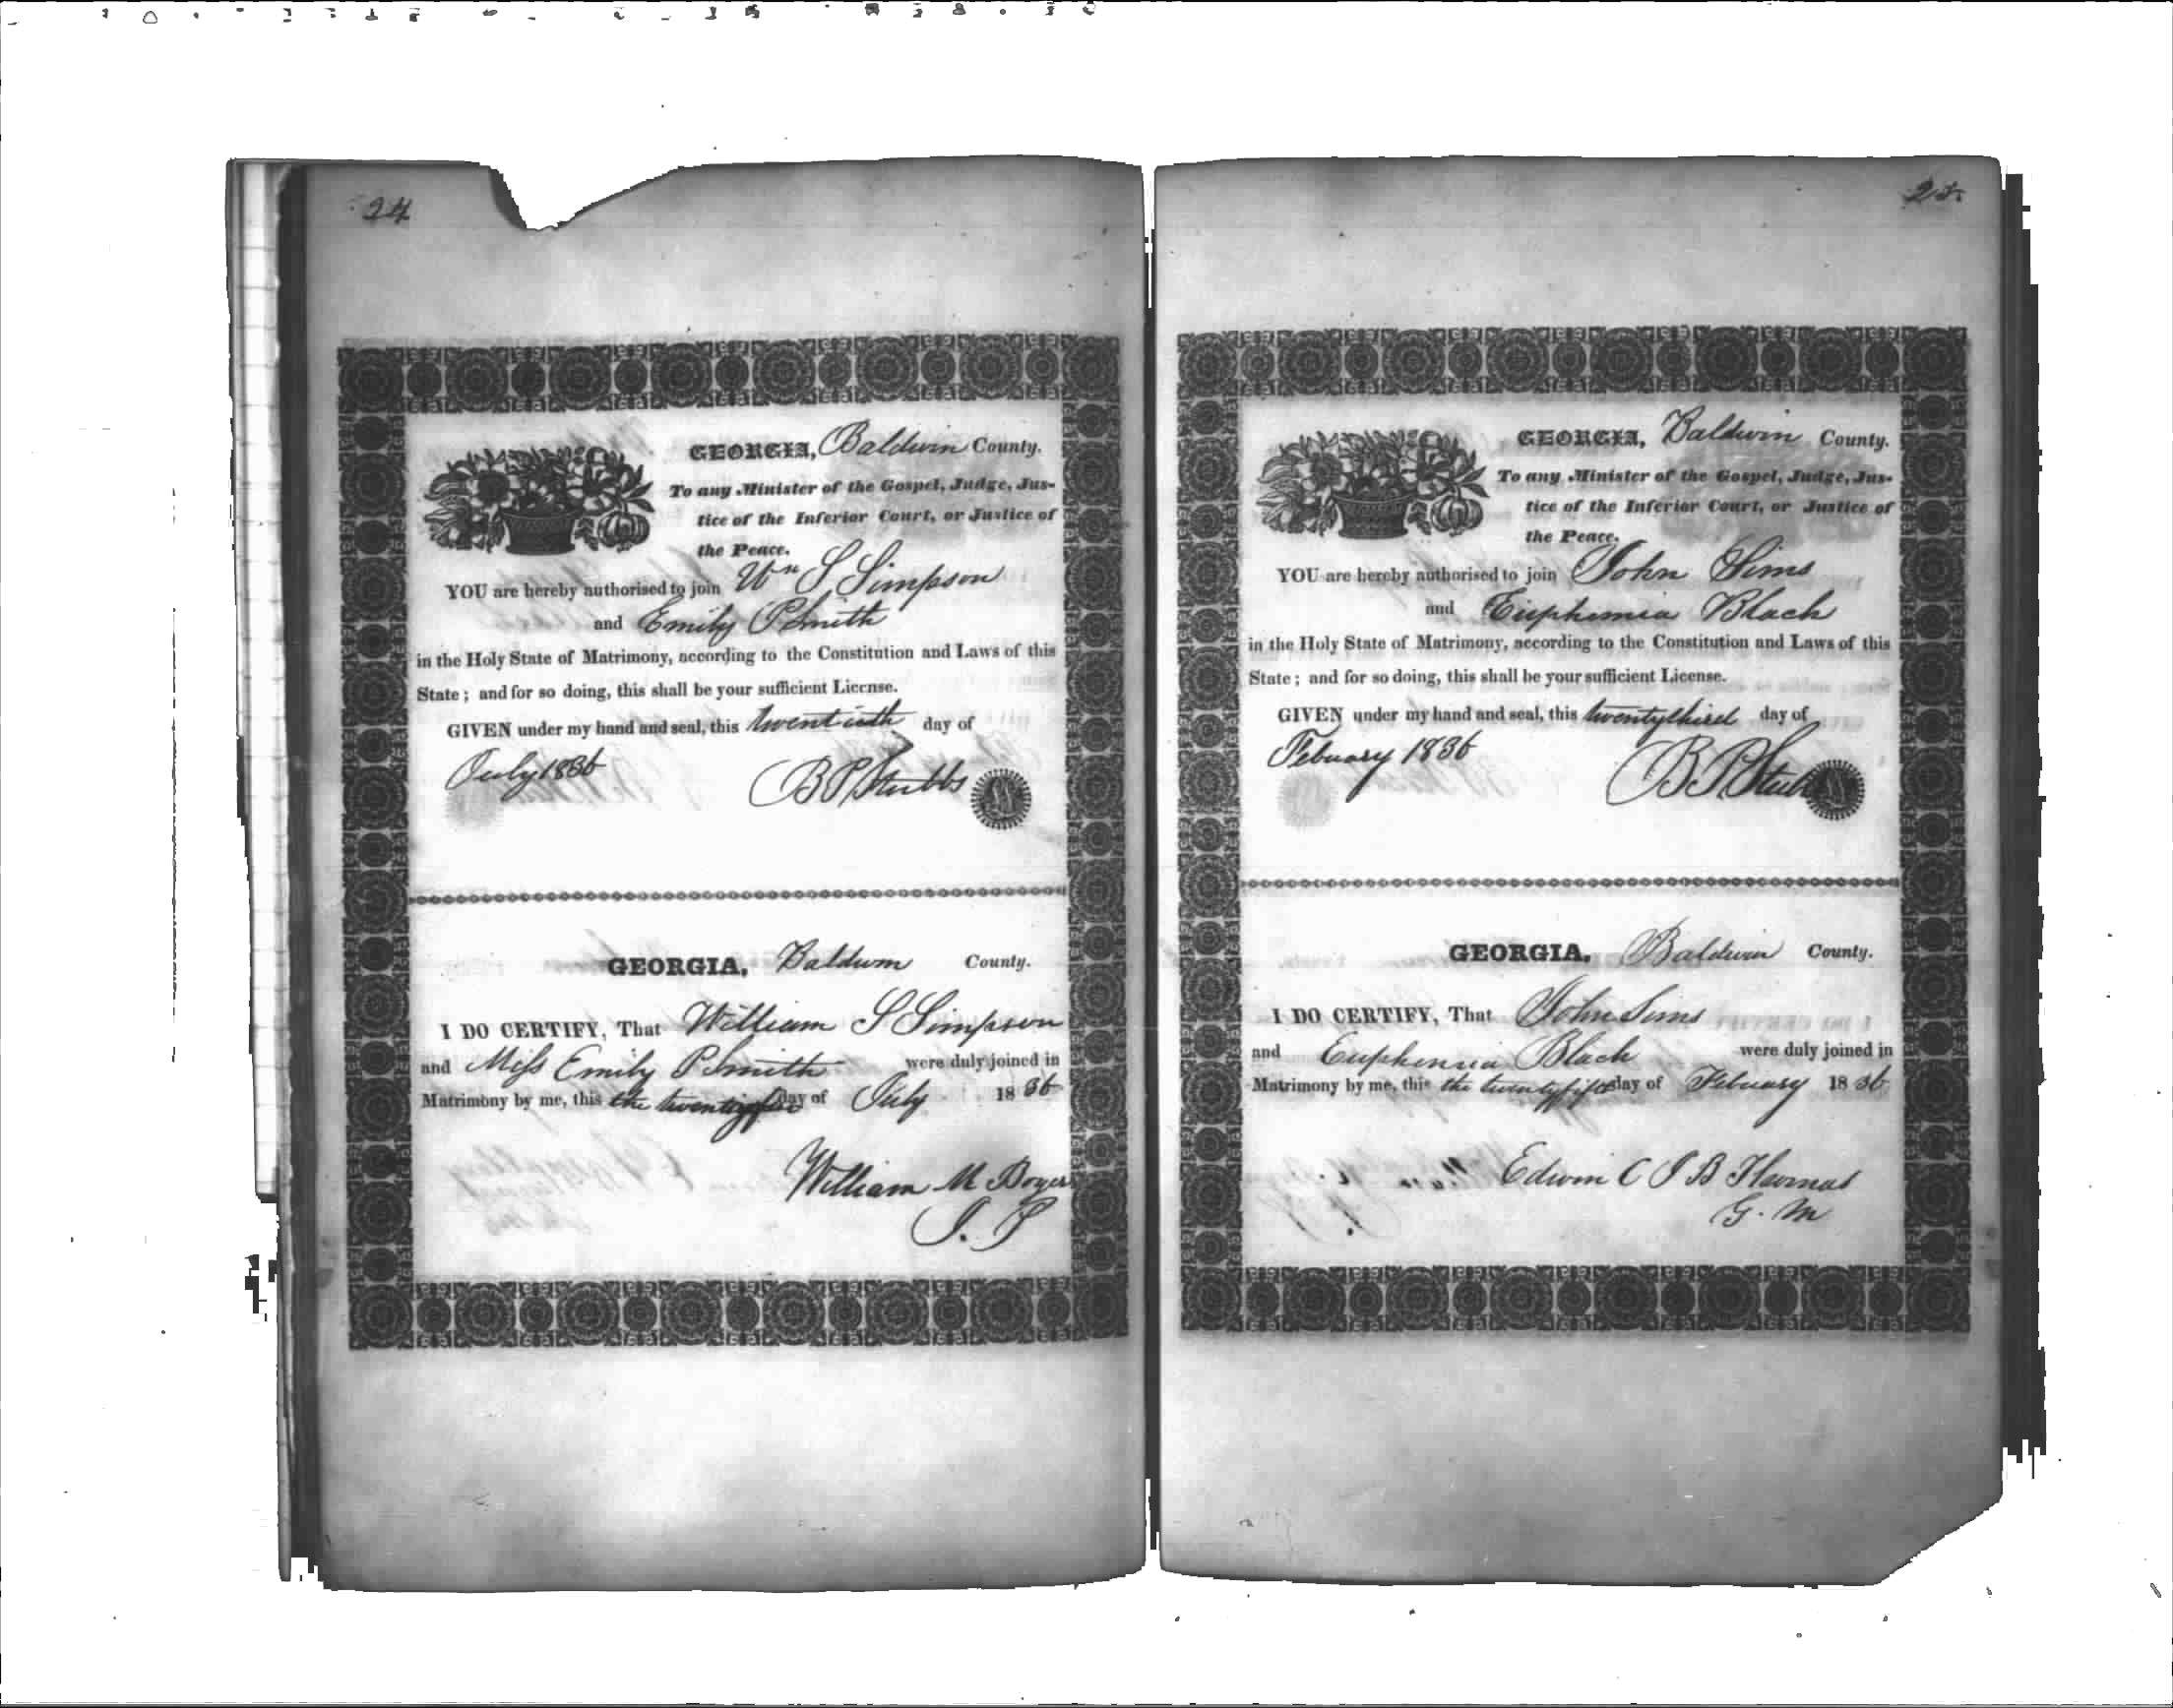 24
GEORGIA, Baldwin County.
To any Minister of the Gospel, Judge, Jus-
tice of the Inferior Court, or Justice of
the Peace.
YOU are hereby authorised to join Wm S Simpson
and Emily P Smith
in the Holy State of Matrimony, according to the Constitution and Laws of this
State; and for so doing, this shall be your sufficient License.
GIVEN under my hand and seal, this twentieth day of
July 1836
B P Stubbs
GEORGIA, Baldwin County.
I DO CERTIFY, That William S Simpson
and Miss Emily P Smith were duly joined in
Matrimony by me, this the day of July 1836
William M Boyer
J. P
25
GEORGIA, Baldwin County.
To any Minister of the Gospel, Judge, Jus-
tice of the Inferior Court, or Justice of
the Peace.
YOU are hereby authorised to join John Sims
and Euphemia Black
in the Holy State of Matrimony, according to the Constitution and Laws of this
State; and for so doing, this shall be your sufficient License.
GIVEN under my hand and seal, this twentythird day of
Febuary 1836
B. P Stubbs
GEORGIA, Baldwin County.
I DO CERTIFY, That John Sims
and Euphemia Black were duly joined in
Matrimony by me, this the day of Febuary 1836
Edwin C J B
G. M